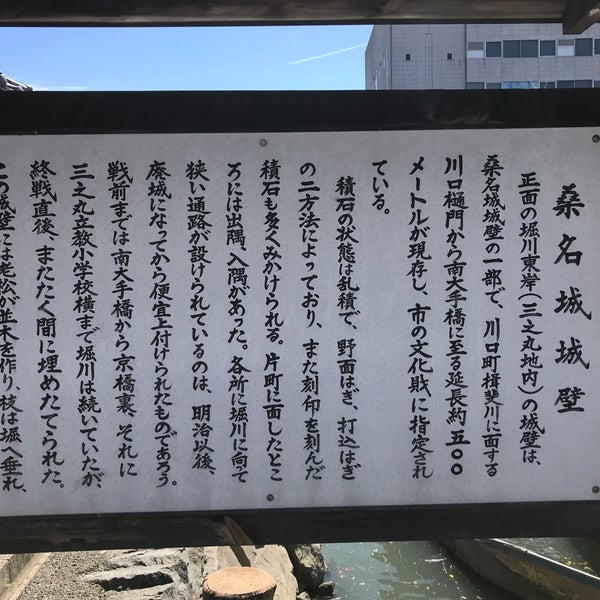 桑名城城壁
正面の堀川東岸(三之丸地内)の城壁は、
桑名城城壁の一部で、川口町揖斐川に面する
川口樋門から南大手橋に至る延長約五〇〇
メートルが現存し、市の文化財に指定され
ている。
積石の状態は乱積で、野面はぎ、打込はぎ
の二方法によっており、また刻印を刻んだ
積石も多くみかけられる。片町に面したとこ
ろには出隅、入隅があった。各所に堀川に向って
狭い通路が設けられているのは、明治以後、
廃城になってから便宜上付けられたものであろう。
戦前までは南大手橋から京橋裏、それに
三之丸立教小学校横まで堀川は続いていたが、
終戦直後、またたく間に埋めたてられた。
この城壁には老松が並木を作り、枝は堀へ垂れ、